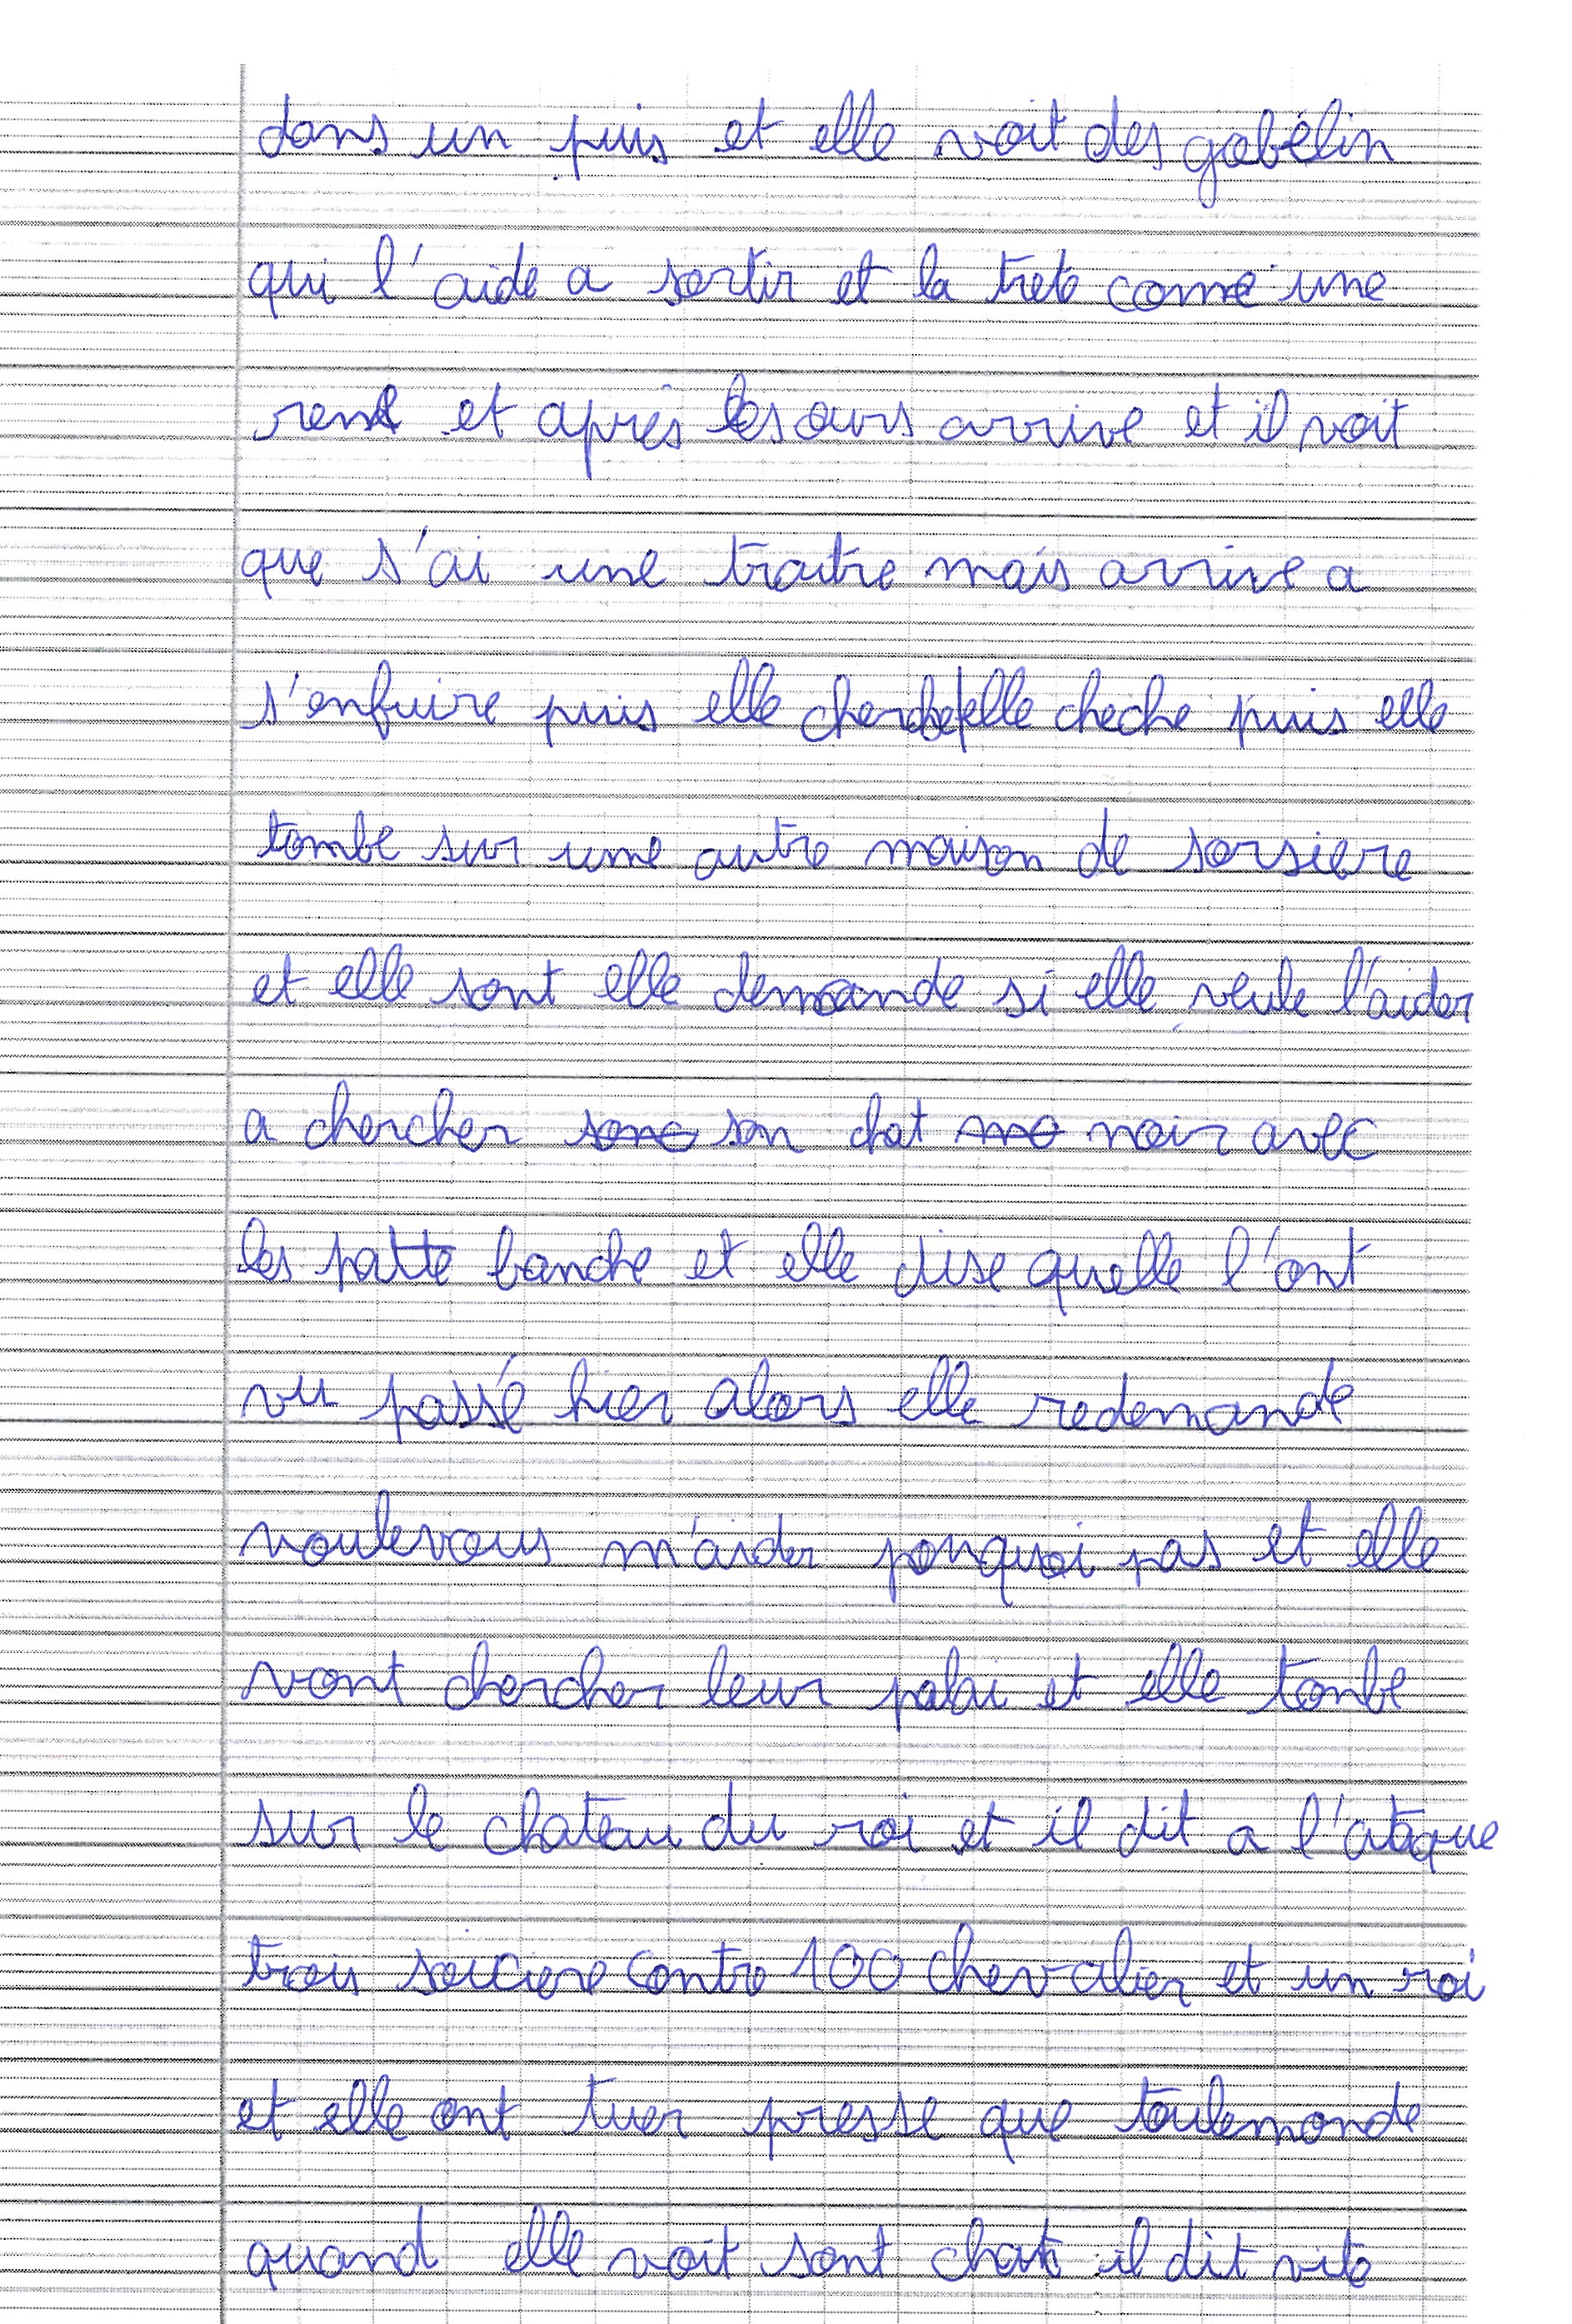 dans un puis et elle voit des gobelin
qui l'aide a sortir et la trete come une
rene et après les ours arrive et il voit
que s'ai une traitre mais arrive a
s'enfuire puis elle cherche elle cheche puis elle
tombe sur une autre maison de sorsiere
et elle sont elle demande si elle veule l'aider
a chercher son chat noir avec
les patte banche et elle dise quelle l'ont
vu passé hier alors elle redemande
voulevous m'aider pourquoi pas et elle
vont chercher leur palai et elle tombe
sur le chateau du roi et il dit a l'ataque
trois soiciere contre 100 chevalier et un roi
et elle ont tuer presse que toulemonde
quand elle voit sont chat il dit vite